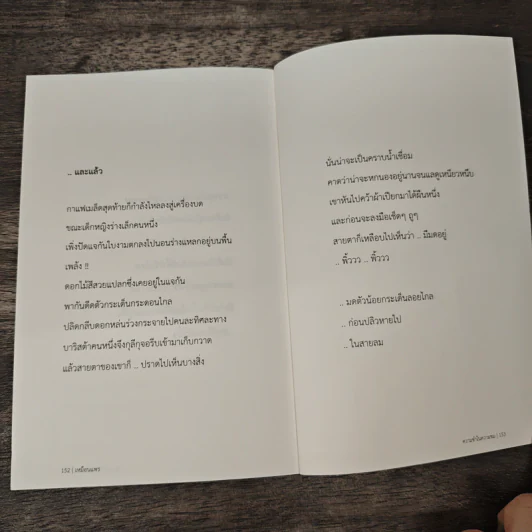 .. และแล้ว
กาแฟเมล็ดสุดท้ายก็กำลังไหลลงสู่เครื่องบด
ขณะเด็กหญิงร่างเล็กคนหนึ่ง
เพิ่งปัดแจกันใบงามตกลงไปนอนร่างแหลกอยู่บนพื้น
เพล้ง !!
ดอกไม้สีสวยแปลกซึ่งเคยอยู่ในแจกัน
พากันดีดตัวกระเด็นกระดอนไกล
ปลิดกลีบดอกหล่นร่วงกระจายไปคนละทิศละทาง
บาริสต้าคนหนึ่งจึงกุลีกุจอรีบเข้ามาเก็บกวาด
แล้วสายตาของเขาก็ .. ปราดไปเห็นบางสิ่ง
152 | เหมือนแพร
นั่นน่าจะเป็นคราบน้ำเชื่อม
คาดว่าน่าจะหกนองอยู่นานจนแลดูเหนียวหนึบ
เขาหันไปคว้าผ้าเปียกมาได้ผืนหนึ่ง
และก่อนจะลงมือเช็ดๆ ถูๆ
สายตาก็เหลือบไปเห็นว่า .. มีมดอยู่
.. ฟิ้ววว .. ฟิ้ววว
.. มดตัวน้อยกระเด็นลอยไกล
.. ก่อนปลิวหายไป
.. ในสายลม
| 153